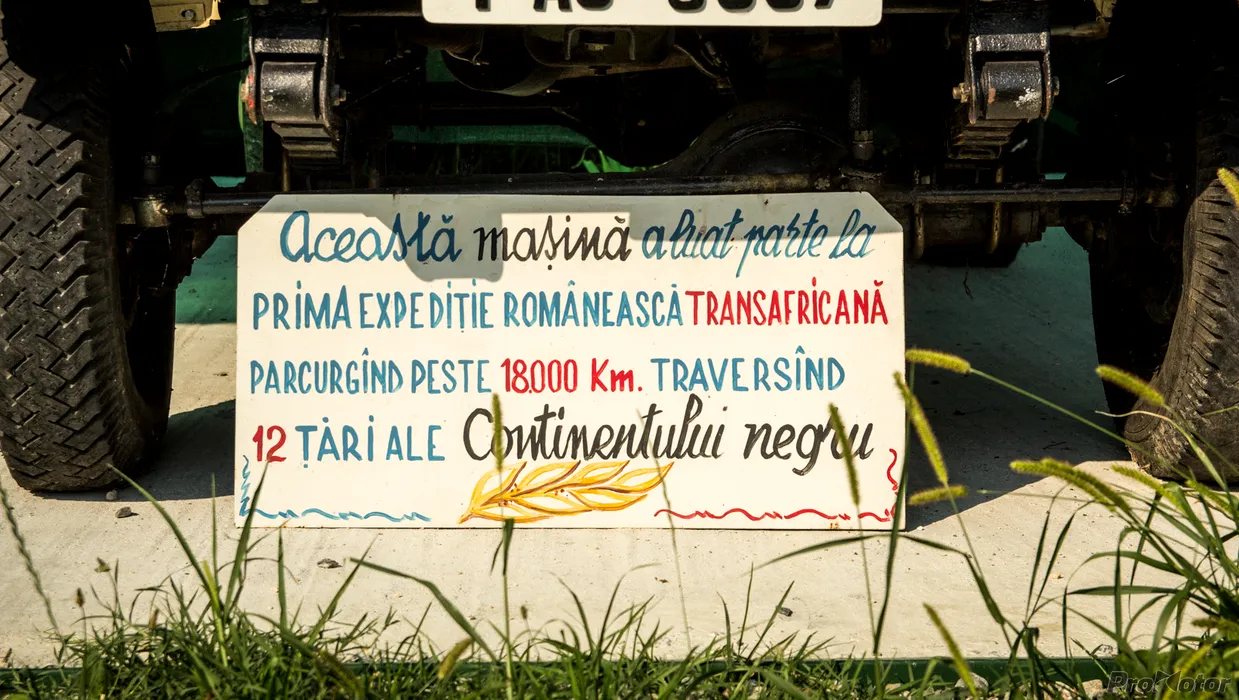 Această mașină a luat parte la
PRIMA EXPEDIȚIE ROMÂNEASCĂ TRANSAFRICANĂ
PARCURGÎND PESTE 18.000 Km. TRAVERSÎND
12 ȚĂRI ALE Continentului negru
ProMotor